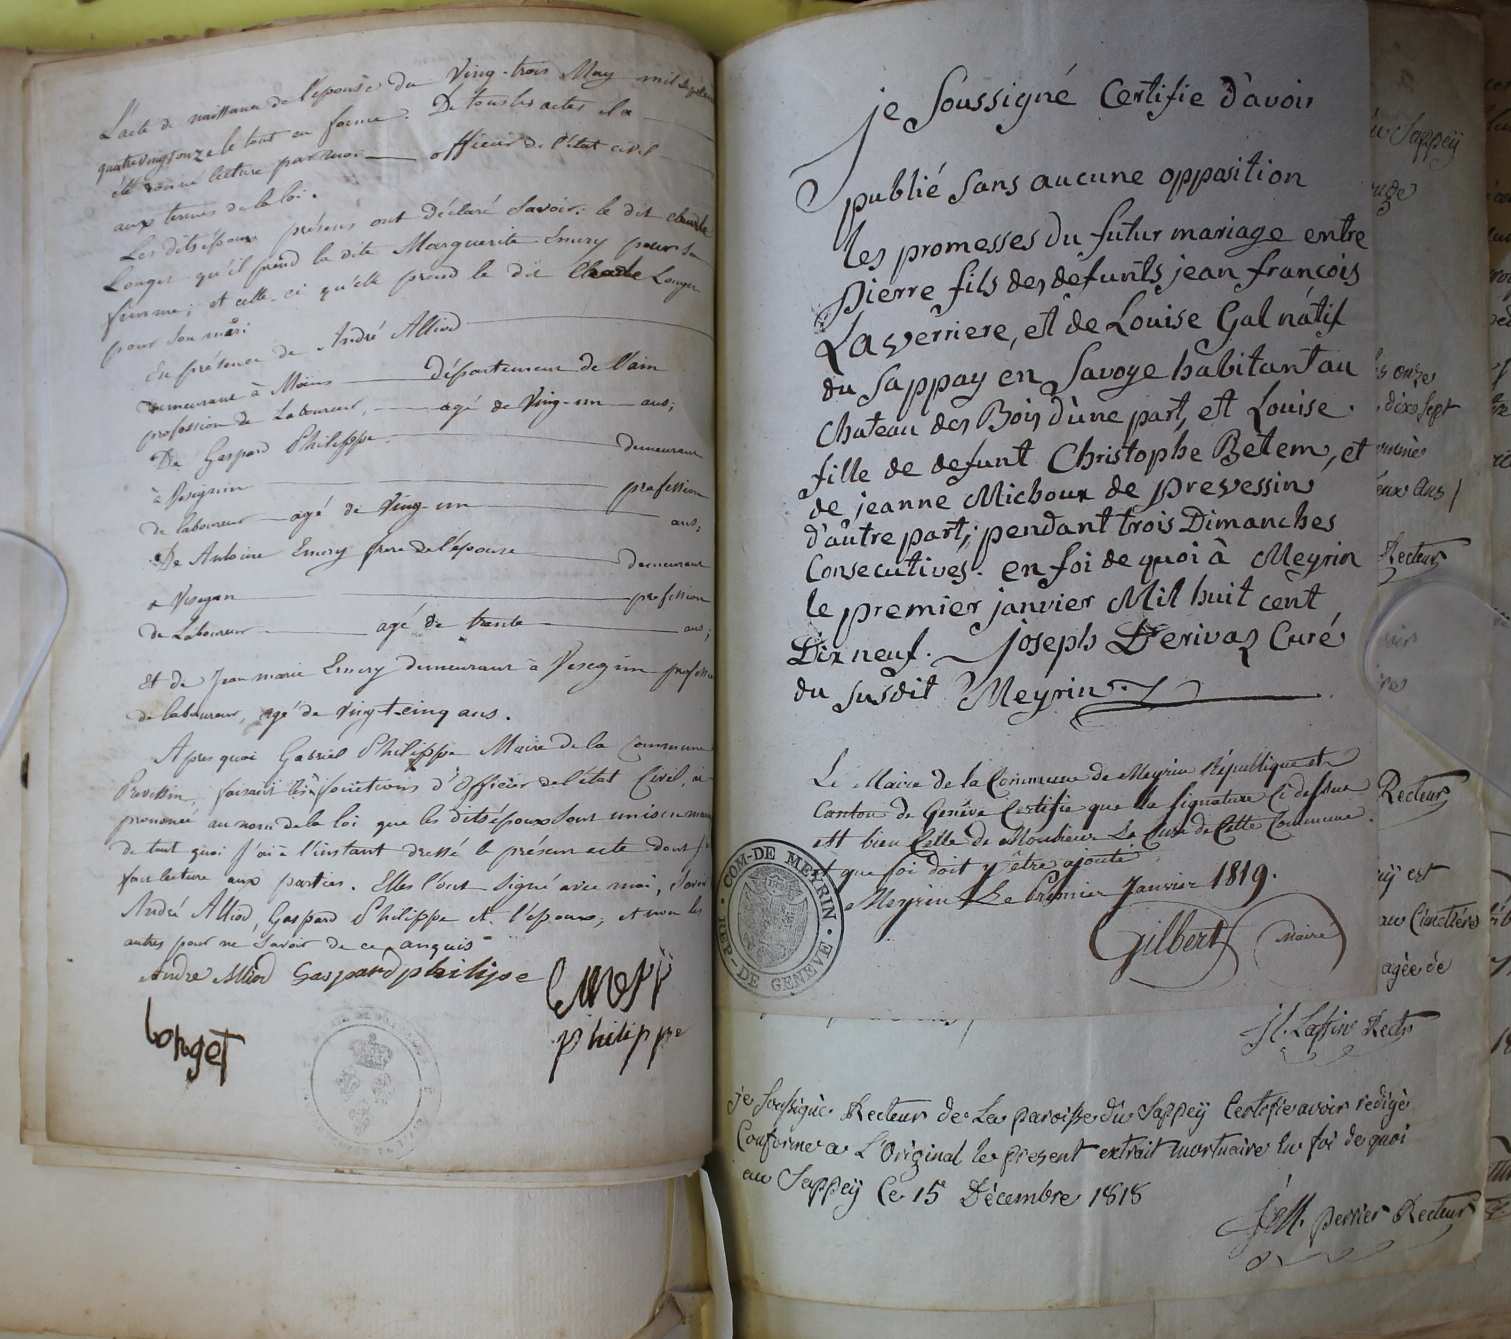 L'acte de naissance de l'épouse du Vingt-trois May mil sept cent
quatrevingt onze le tout en forme. De tous les actes il a
été donné lecture par moi officier de l'état civil
aux termes de la loi.
Les dits époux présens ont déclaré savoir: le dit Claude
Longet qu'il prend la dite Marguerite Emery pour sa
femme; et celle-ci qu'elle prend le dit Claude Longet
pour son mari.
En présence de André Alliod
demeurant à Moins département de l'ain
profession de Laboureur, agé de Vingt-un ans;
De Gaspard Philippe demeurant
à Vesegnin profession
de laboureur agé de Vingt-un ans;
De Antoine Emery frere de l'épouse demeurant
a Vesegnin profession
de Laboureur agé de trente ans;
et de Jean marie Emery demeurant à Vesegnin profession
de laboureur, agé de vingt-cinq ans.
Apres quoi Gabriel Philippe Maire de la Commune
Prevessin, faisant les fonctions d'Officier de l'état Civil, a
prononcé au nom de la loi que les dits époux sont unis en mariage
de tout quoi j'ai à l'instant dressé le présent acte dont j'ai
fait lecture aux parties. Elles l'ont signé avec moi, savoir
André Alliod, Gaspard Philippe et l'epoux, et non les
autres pour ne savoir de ce enquis
Andre Alliod Gaspard philippe Emery
Longet philippe
je Soussigné Certifie d'avoir
publié Sans aucune opposition
les promesses du futur mariage entre
Pierre fils des défunts jean françois
Laverriere, et de Louise Gal natif
du Sappay en Savoye habitant au
Chateau des Bois d'une part, et Louise
fille de defunt Christophe Betem, et
de jeanne Michoux de prevessin
d'autre part; pendant trois Dimanches
Consecutives. en foi de quoi à Meyrin
le premier janvier Mil huit cent
Dix neuf. joseph Derivaz Curé
du susdit Meyrin.
Le Maire de la Commune de Meyrin République et
Canton de Genève Certifie que la signature Ci dessus
est bien Celle de Monsieur Le Curé de Cette Commune
et que foi doit y être ajouté
a Meyrin Le Premier Janvier 1819.
Gilbert Maire
COM-DE MEYRIN
REP-DE GENEVE
Rectr
je soussigné Recteur de La paroisse du Sappey Certifie avoir redigé
Conforme a L'Original le present extrait mortuaire En foi de quoi
au Sappey Ce 15 Décembre 1818
perrier Recteur
du Sappey
onze
dix sept
ans
Recteur
Recteur
est
au Cimetière
agée de